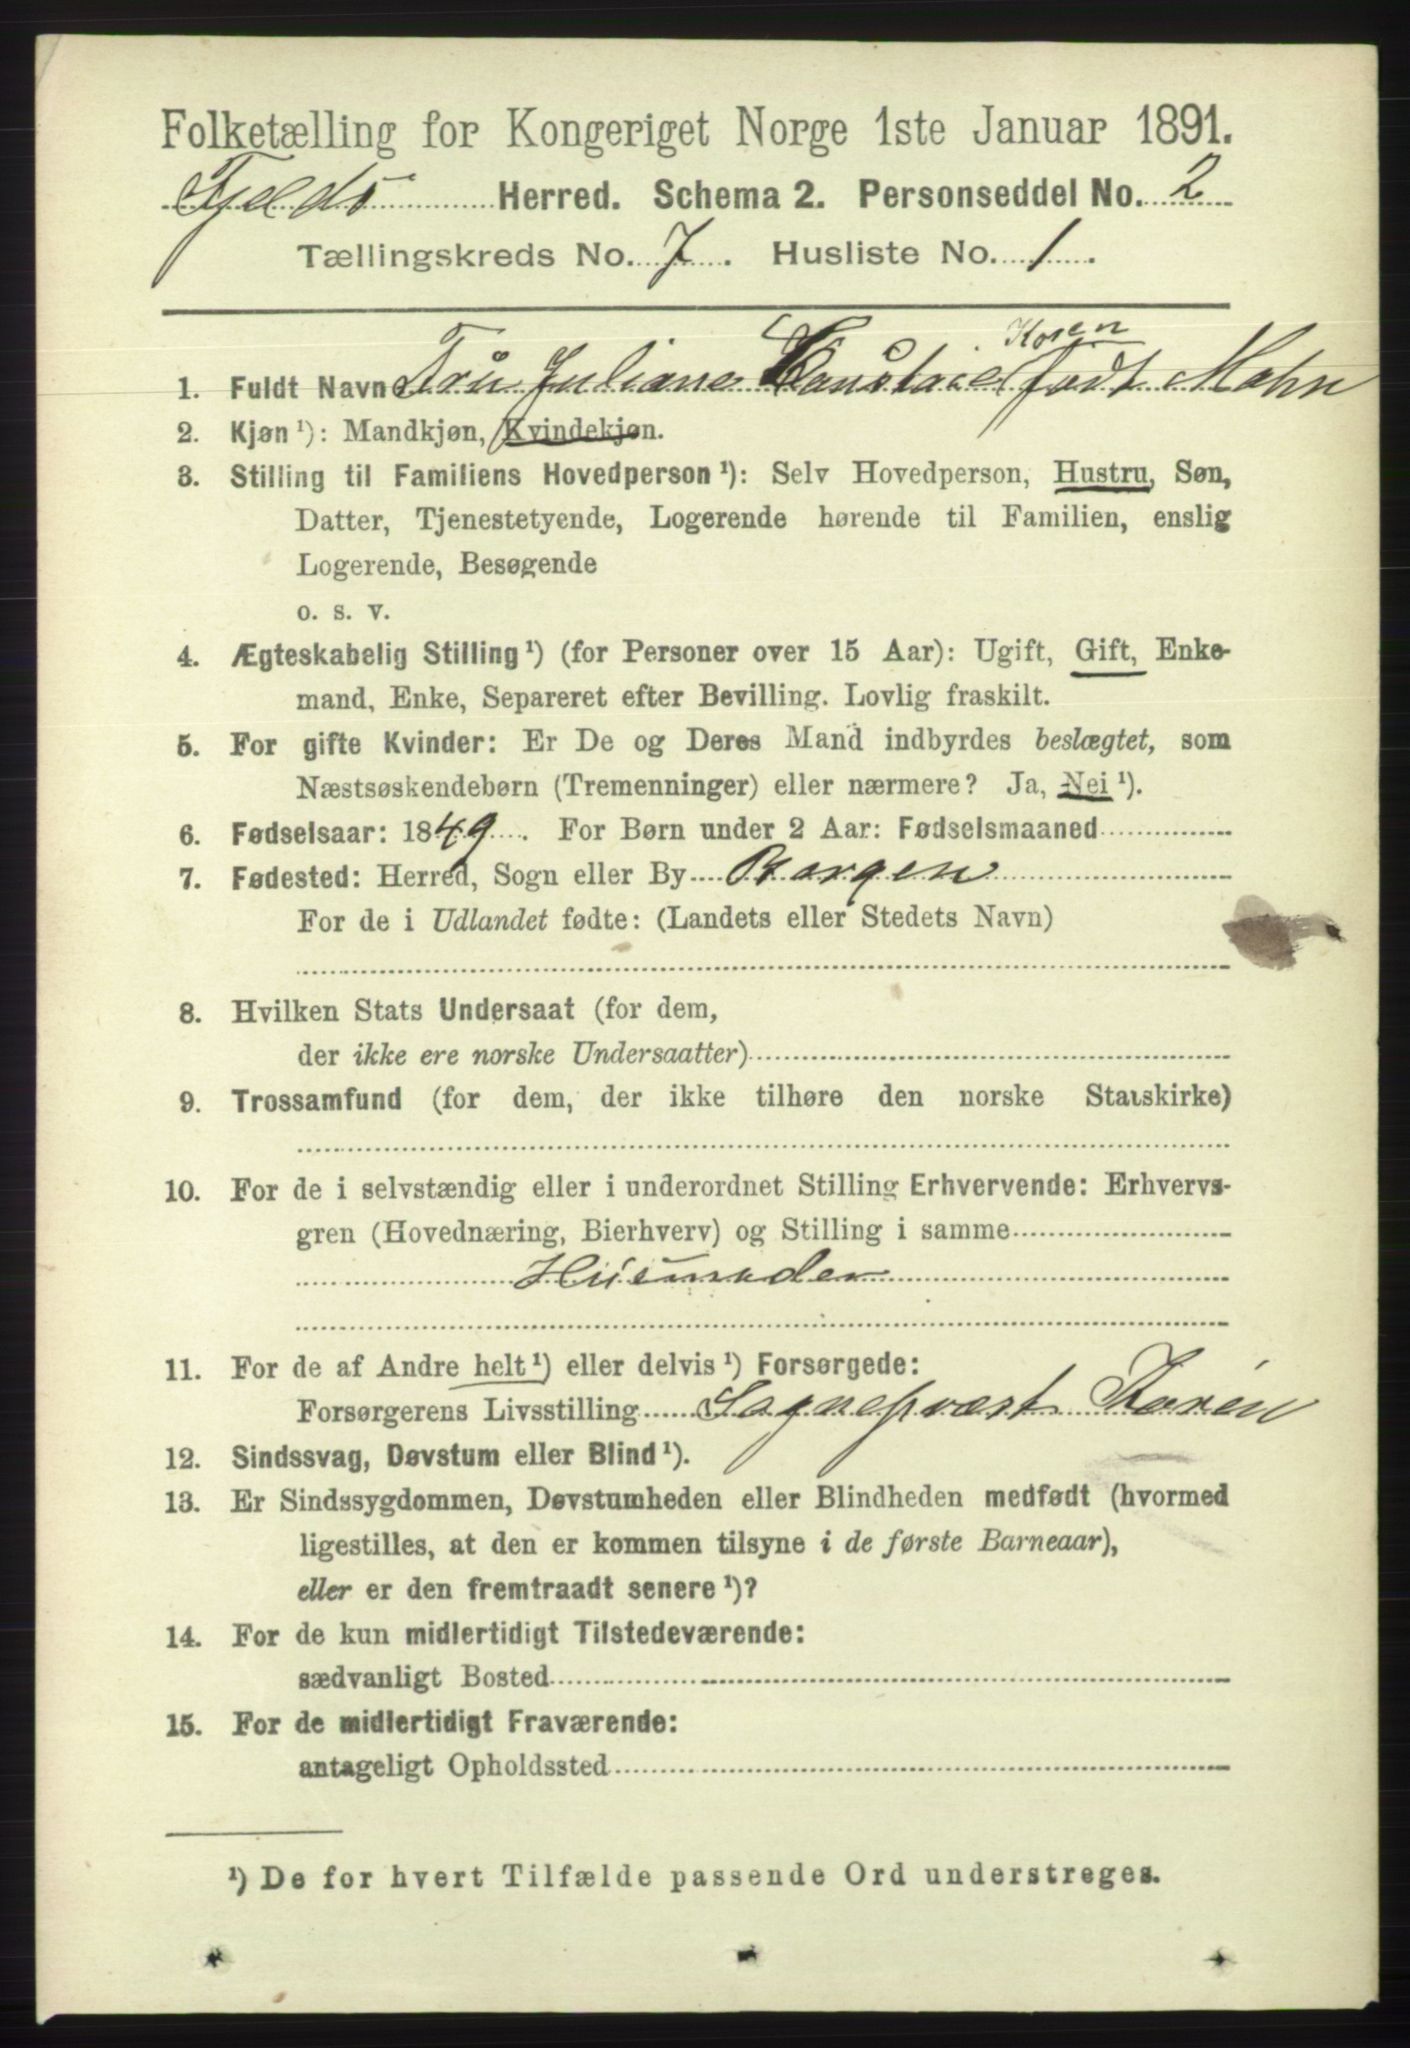 Folketælling for Kongeriget Norge 1ste Januar 1891.
Fjelds Herred. Schema 2. Personseddel No. 2
Tællingskreds No. 7. Husliste No. 1.
Koren
1. Fuldt Navn Fru Juliane født Mohn
2. Kjøn ¹): Mandkjøn, Kvindekjøn.
3. Stilling til Familiens Hovedperson ¹): Selv Hovedperson, Hustru, Søn,
Datter, Tjenestetyende, Logerende hørende til Familien, enslig
Logerende, Besøgende
o. s. v.
4. Ægteskabelig Stilling ¹) (for Personer over 15 Aar): Ugift, Gift, Enke-
mand, Enke, Separeret efter Bevilling. Lovlig fraskilt.
5. For gifte Kvinder: Er De og Deres Mand indbyrdes beslægtet, som
Næstsøskendebørn (Tremenninger) eller nærmere? Ja, Nei ¹).
6. Fødselsaar: 1849. For Børn under 2 Aar: Fødselsmaaned
7. Fødested: Herred, Sogn eller By Bergen
For de i Udlandet fødte: (Landets eller Stedets Navn)
8. Hvilken Stats Undersaat (for dem,
der ikke ere norske Undersaatter)
9. Trossamfund (for dem, der ikke tilhøre den norske Statskirke)
10. For de i selvstændig eller i underordnet Stilling Erhvervende: Erhvervs-
gren (Hovednæring, Bierhverv) og Stilling i samme
Husmoder
11. For de af Andre helt ¹) eller delvis ¹) Forsørgede:
Forsørgerens Livsstilling Sognepræst Korén
12. Sindssvag, Døvstum eller Blind ¹).
13. Er Sindssygdommen, Døvstumheden eller Blindheden medfødt (hvormed
ligestilles, at den er kommen tilsyne i de første Barneaar),
eller er den fremtraadt senere ¹)?
14. For de kun midlertidigt Tilstedeværende:
sædvanligt Bosted
15. For de midlertidigt Fraværende:
antageligt Opholdssted
¹) De for hvert Tilfælde passende Ord understreges.